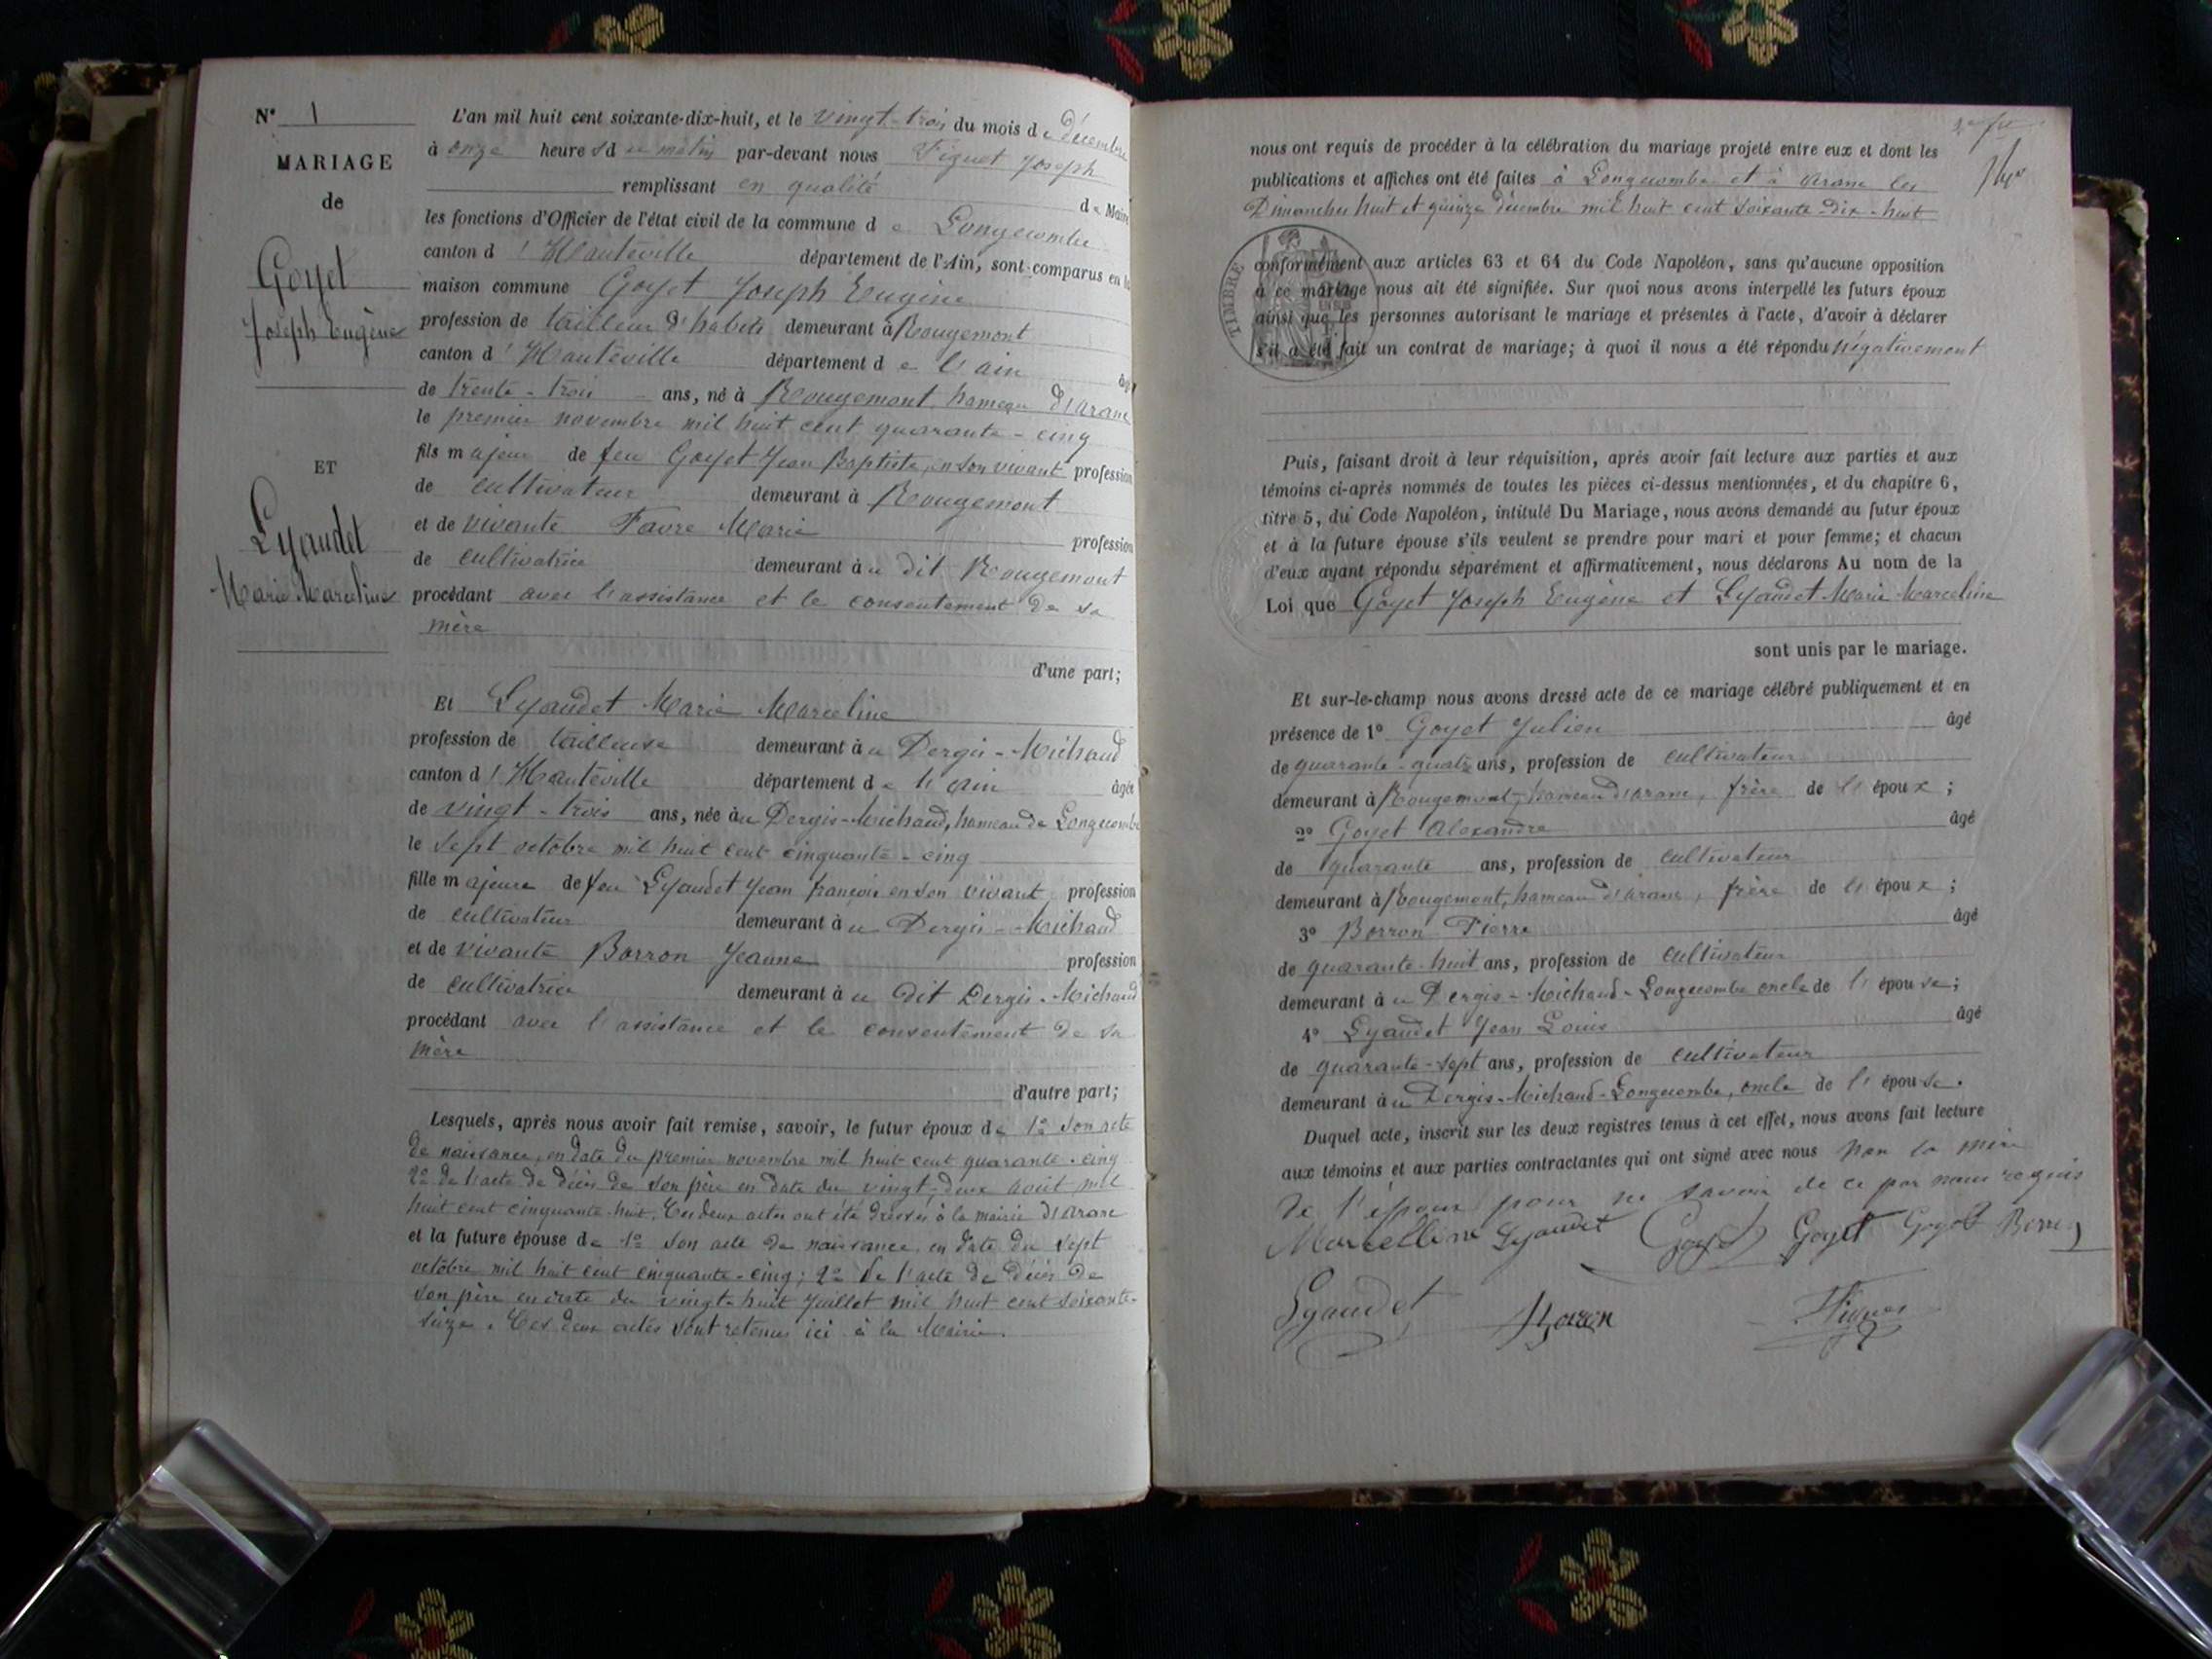 N° 1
MARIAGE
de
Goyet
Joseph Eugène
ET
Lyaudet
Marie Marceline
L'an mil huit cent soixante-dix-huit, et le vingt-trois du mois de décembre
à onze heures du matin par-devant nous Figuet Joseph
remplissant en qualité de Maire
les fonctions d'Officier de l'état civil de la commune de Longecombe
canton d'Hauteville département de l'Ain, sont comparus en la
maison commune Goyet Joseph Eugène
profession de tailleur d'habits demeurant à Rougemont
canton d'Hauteville département de l'ain âgé
de trente-trois ans, né à Rougemont, hameau d'arane
le premier novembre mil huit cent quarante-cinq
fils majeur de feu Goyet Jean Baptiste, en son vivant profession
de cultivateur demeurant à Rougemont
et de vivante Favre Marie profession
de cultivatrice demeurant au dit Rougemont
procédant avec l'assistance et le consentement de sa
mère
d'une part;
Et Lyaudet Marie Marceline
profession de tailleuse demeurant au Dergis-Michaud
canton d'Hauteville département de l'ain âgée
de vingt-trois ans, née au Dergis-Michaud, hameau de Longecombe
le sept octobre mil huit cent cinquante-cinq
fille majeure de feu Lyaudet Jean françois en son vivant, profession
de cultivateur demeurant au Dergis-Michaud
et de vivante Borron Jeanne profession
de cultivatrice demeurant au dit Dergis-Michaud
procédant avec l'assistance et le consentement de sa
mère
d'autre part;
Lesquels, après nous avoir fait remise, savoir, le futur époux de 1° son acte
de naissance, en date du premier novembre mil huit cent quarante-cinq
2° de l'acte de décès de son père en date du vingt-deux août mil
huit cent cinquante-huit. Ces deux actes ont été dressés à la mairie d'arane
et la future épouse de 1° son acte de naissance, en date du sept
octobre mil huit cent cinquante-cinq; 2° de l'acte de décès de
son père en date du vingt-huit Juillet mil huit cent soixante-
seize. Ces deux actes sont retenus ici à la Mairie.
nous ont requis de procéder à la célébration du mariage projeté entre eux et dont les
publications et affiches ont été faites à Longecombe et à arane les
Dimanches huit et quinze décembre mil huit cent soixante-dix-huit
TIMBRE
conformément aux articles 63 et 64 du Code Napoléon, sans qu'aucune opposition
à ce mariage nous ait été signifiée. Sur quoi nous avons interpellé les futurs époux
ainsi que les personnes autorisant le mariage et présentes à l'acte, d'avoir à déclarer
s'il a été fait un contrat de mariage; à quoi il nous a été répondu négativement
Puis, faisant droit à leur réquisition, après avoir fait lecture aux parties et aux
témoins ci-après nommés de toutes les pièces ci-dessus mentionnées, et du chapitre 6,
titre 5, du Code Napoléon, intitulé Du Mariage, nous avons demandé au futur époux
et à la future épouse s'ils veulent se prendre pour mari et pour femme; et chacun
d'eux ayant répondu séparément et affirmativement, nous déclarons Au nom de la
Loi que Goyet Joseph Eugène et Lyaudet Marie Marceline
sont unis par le mariage.
Et sur-le-champ nous avons dressé acte de ce mariage célébré publiquement et en
présence de 1° Goyet Julien âgé
de quarante-quatre ans, profession de cultivateur
demeurant à Rougemont, hameau d'arane, frère de l'époux;
2° Goyet Alexandre âgé
de quarante ans, profession de cultivateur
demeurant à Rougemont, hameau d'arane, frère de l'époux;
3° Borron Pierre âgé
de quarante-huit ans, profession de cultivateur
demeurant au Dergis-Michaud-Longecombe oncle de l'épouse;
4° Lyaudet Jean Louis âgé
de quarante-sept ans, profession de cultivateur
demeurant au Dergis-Michaud-Longecombe, oncle de l'épouse.
Duquel acte, inscrit sur les deux registres tenus à cet effet, nous avons fait lecture
aux témoins et aux parties contractantes qui ont signé avec nous non la mère
de l'époux pour ne savoir de ce par nous requis
Marcelline Lyaudet Goyet Goyet Goyet Borron
Lyaudet Boron